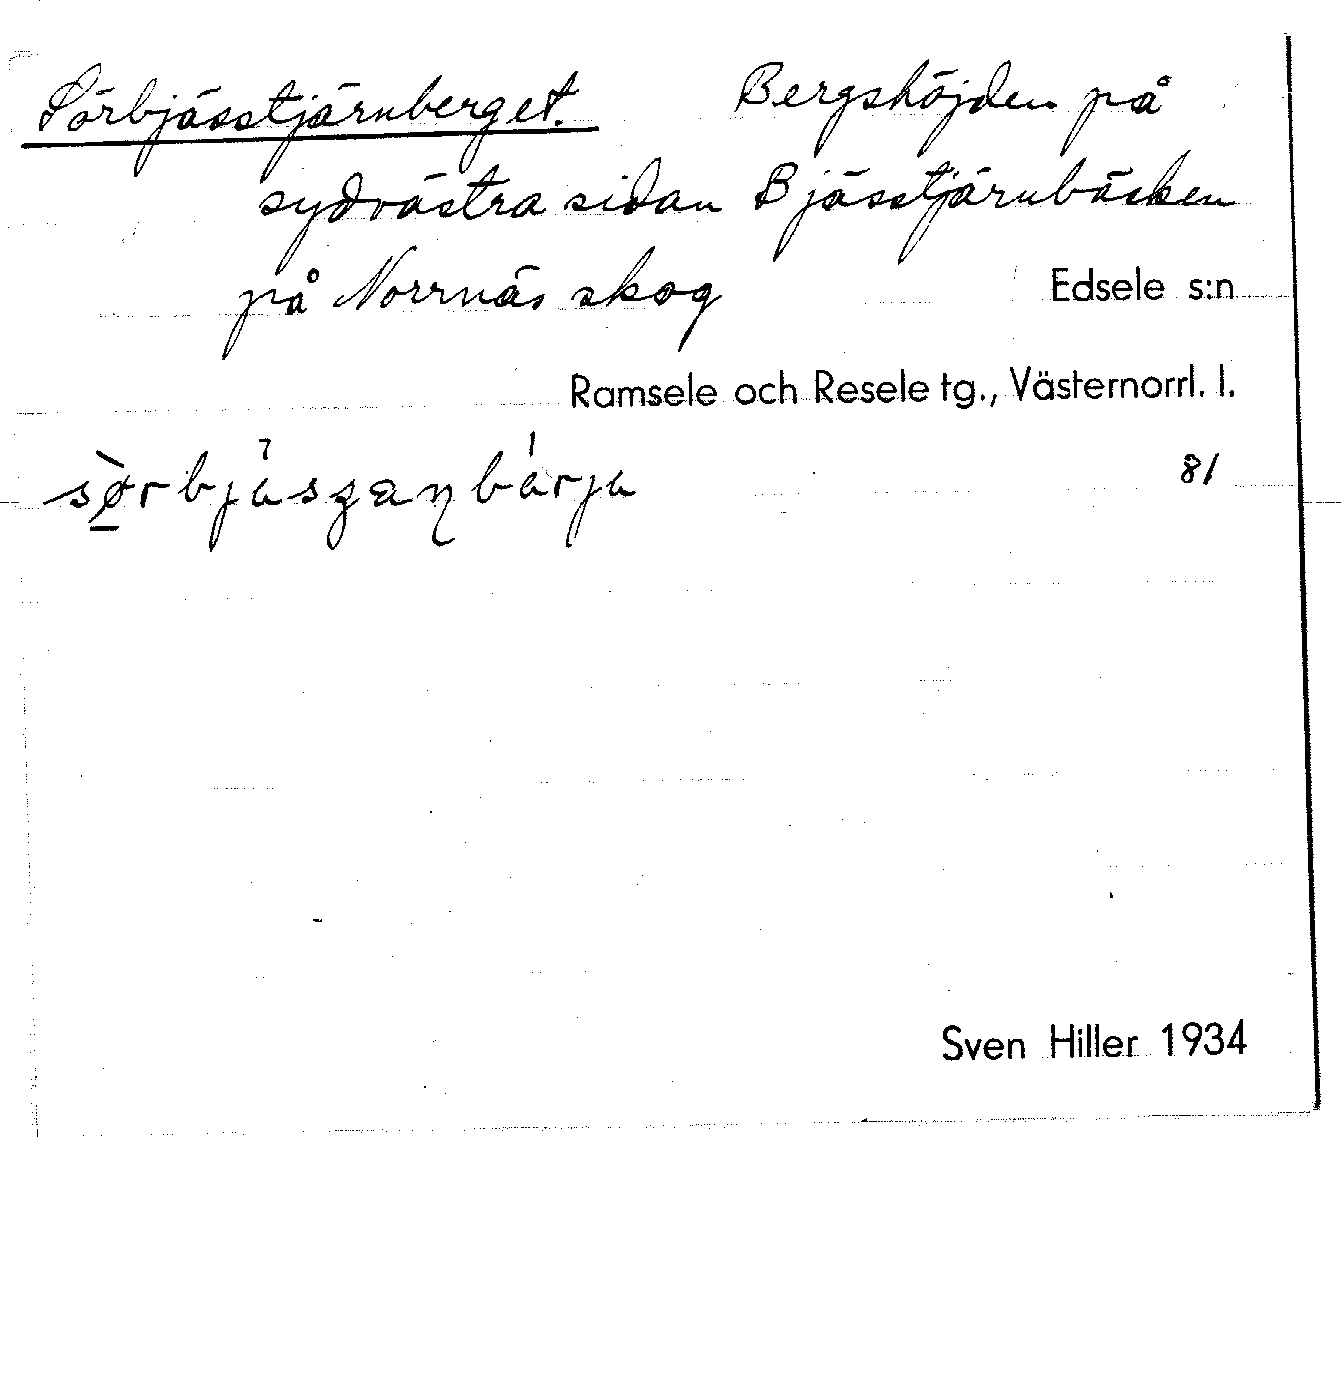 Sörbjässtjärnberget. Bergshöjden på
sydvästra sidan Bjässtjärnbäcken
på Norrnäs skog Edsele s:n
Ramsele och Resele tg., Västernorrl. l.
81
Sven Hiller 1934